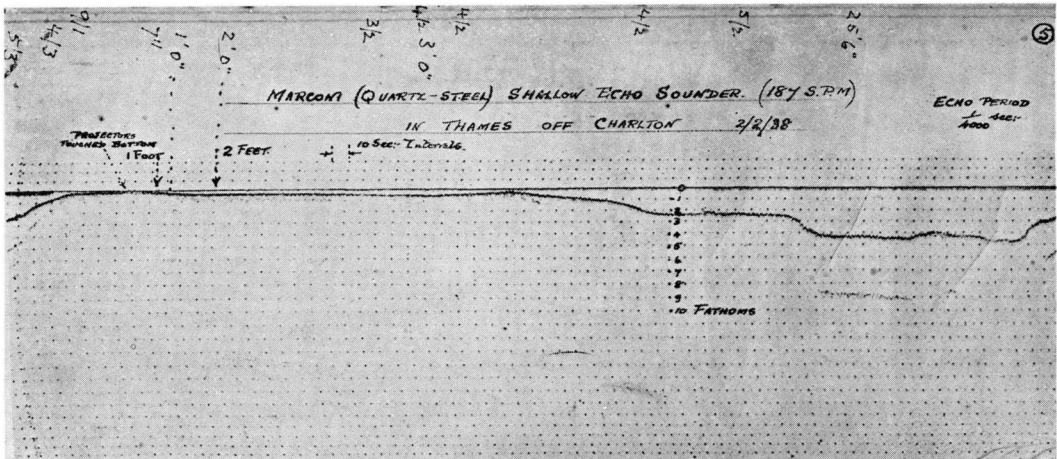 1' 0"
2' 0"
3' 0"
2' 6"
5
MARCONI (QUARTZ-STEEL) SHALLOW ECHO SOUNDER. (187 S.P.M)
IN THAMES OFF CHARLTON 2/2/38
ECHO PERIOD
1/4000 sec:-
PROJECTORS
TOUCHED BOTTOM
1 FOOT
2 FEET.
10 Sec:- Intervals.
0
1
2
3
4
5
6
7
8
9
10 FATHOMS